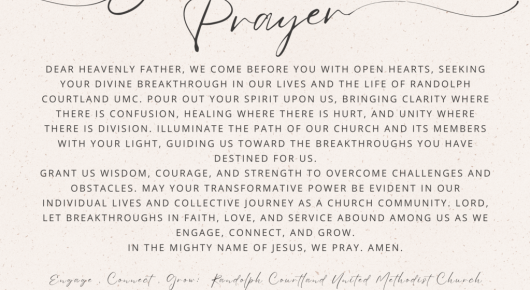 Prayer
DEAR HEAVENLY FATHER, WE COME BEFORE YOU WITH OPEN HEARTS, SEEKING
YOUR DIVINE BREAKTHROUGH IN OUR LIVES AND THE LIFE OF RANDOLPH
COURTLAND UMC. POUR OUT YOUR SPIRIT UPON US, BRINGING CLARITY WHERE
THERE IS CONFUSION, HEALING WHERE THERE IS HURT, AND UNITY WHERE
THERE IS DIVISION. ILLUMINATE THE PATH OF OUR CHURCH AND ITS MEMBERS
WITH YOUR LIGHT, GUIDING US TOWARD THE BREAKTHROUGHS YOU HAVE
DESTINED FOR US.
GRANT US WISDOM, COURAGE, AND STRENGTH TO OVERCOME CHALLENGES AND
OBSTACLES. MAY YOUR TRANSFORMATIVE POWER BE EVIDENT IN OUR
INDIVIDUAL LIVES AND COLLECTIVE JOURNEY AS A CHURCH COMMUNITY. LORD,
LET BREAKTHROUGHS IN FAITH, LOVE, AND SERVICE ABOUND AMONG US AS WE
ENGAGE, CONNECT, AND GROW.
IN THE MIGHTY NAME OF JESUS, WE PRAY. AMEN.
Engage . Connect . Grow: Randolph Courtland United Methodist Church